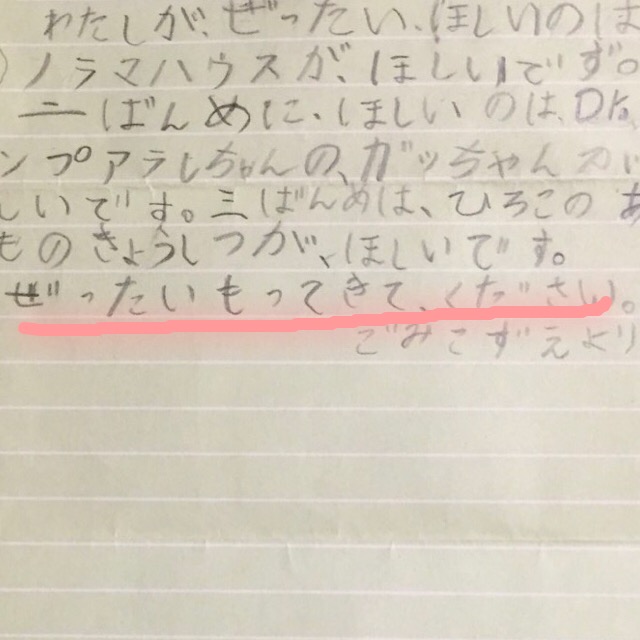 わたしが、ぜったい、ほしいのは
ノラマハウスが、ほしいでず。
一ばんめに、ほしいのは、DR.
ンプアラしちゃんの、ガッちゃんが
しいです。三ばんめは、ひろこの
ものきょうしつが、ほしいです。
ぜったいもってきて、ください。
ごみこずえより